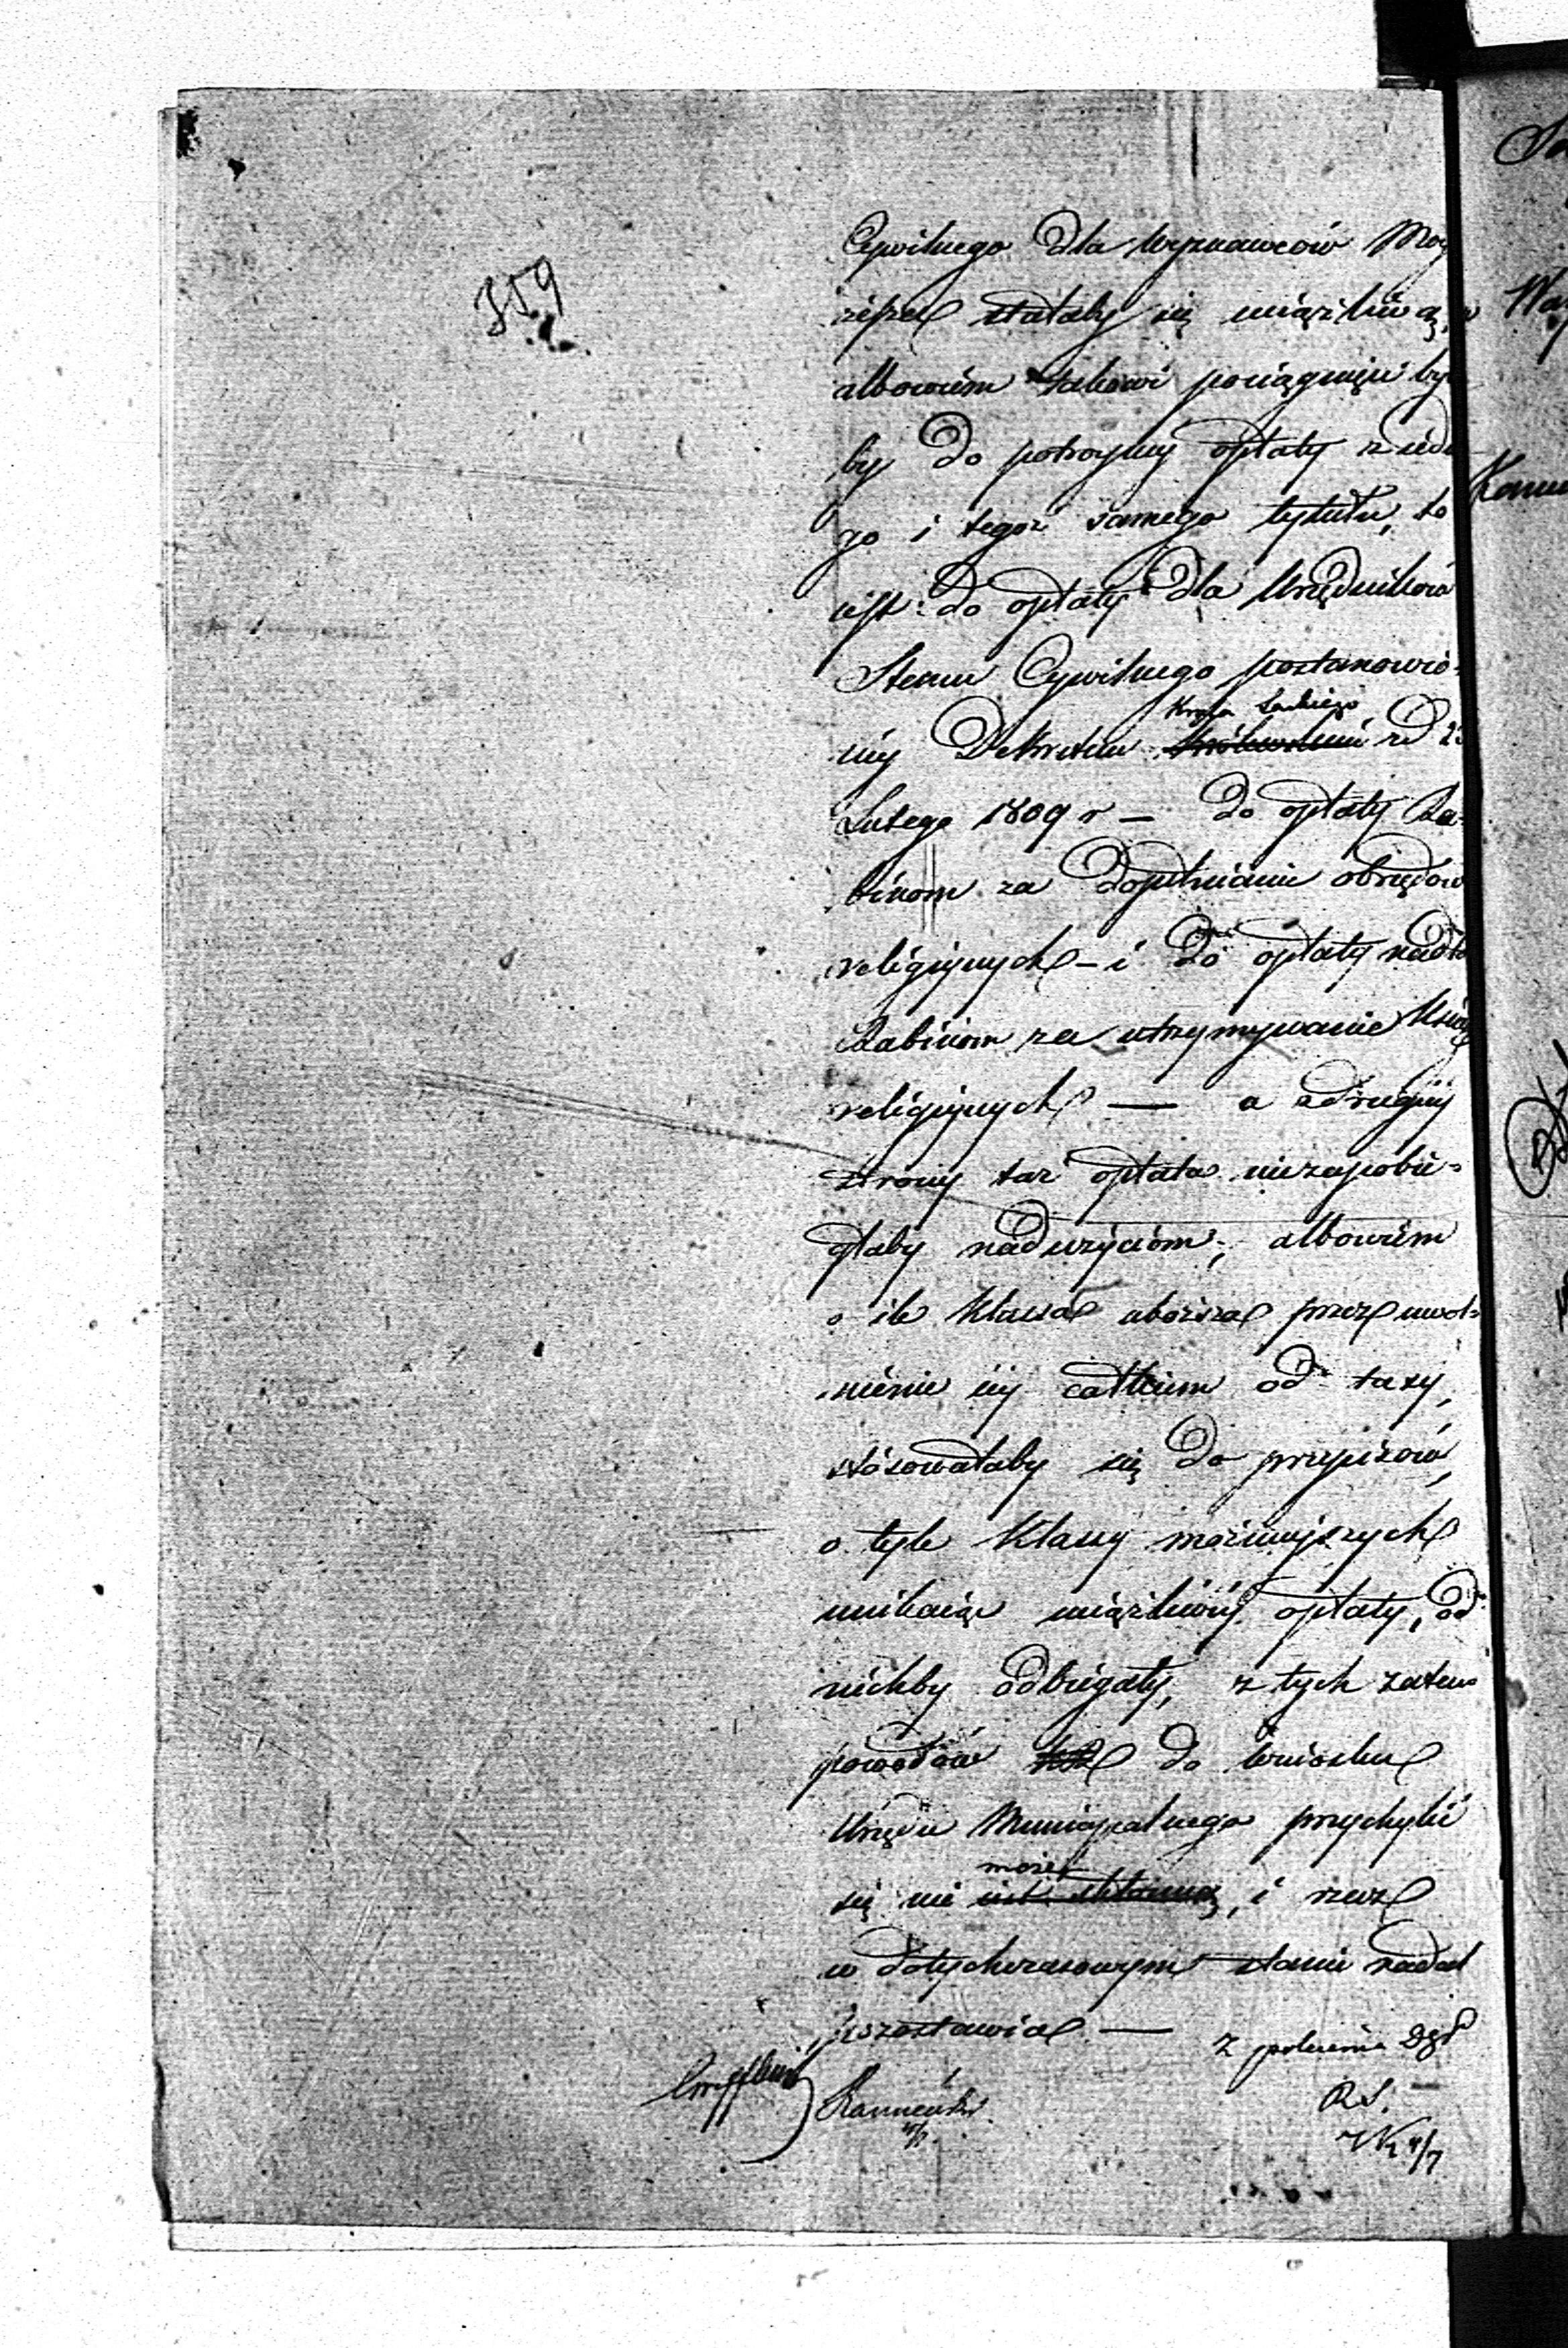 359
Cywilnego dla wyznawców Moy
żesza stałaby się uciążliwą,
albowiem takowi pociągnięci by
by do potroyney opłaty z iedne
go i tegoż samego tytułu, to
iest: do opłaty dla Urzędników
Stanu Cywilnego postanowio=
ney Dekretem Króla Saskiego Królewskim z d 23
Lutego 1809 r — do opłaty Ra=
binom za dopełnianie obrzędów
religiynych – i do opłaty nadto
Rabinom za utrzymywanie Ksiąg
religiynych — a z drugiey
strony taż opłata niezapobie=
głaby nadużyciom; albowiem
o ile Klassa uboższa przez uwol=
nienie iey całkiem od taxy,
stósowałaby się do przepisów,
o tyle Klassy możnieyszych
unikaiąc uciążliwey opłaty, od
nichby odbiegały, z tych zatem
powodów do wniosku
Urzędu Municypalnego przychylić
się nie może iest skłonną, i rzecz
w dotychczasowym stanie nadal
pozostawia —
z polecenia